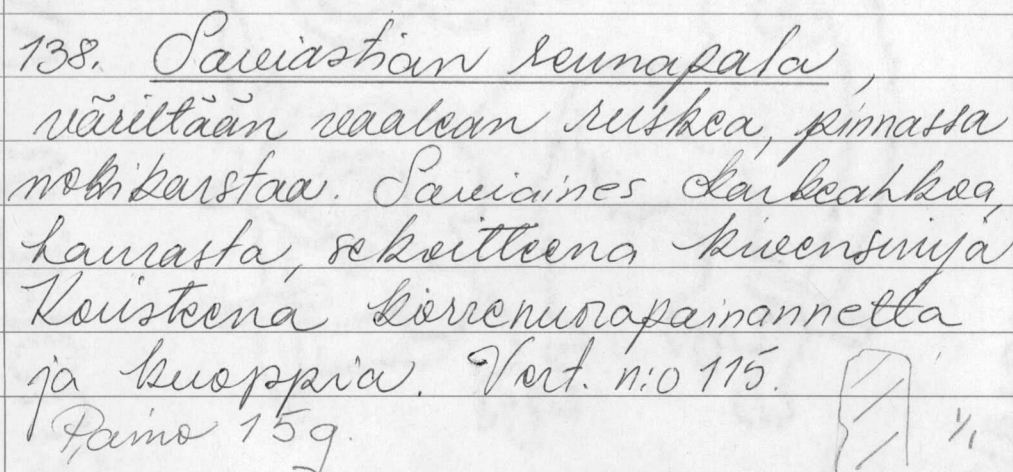 138. Saviastian reunapala,
väriltään vaalean ruskea, pinnassa
nokikarstaa. Saviaines karkeahkoa,
haurasta, sekoitteena kivensiruja
Koristeena korrenuorapainannetta
ja kuoppia. Vert. n:o 115.
Paino 15g. 1/1